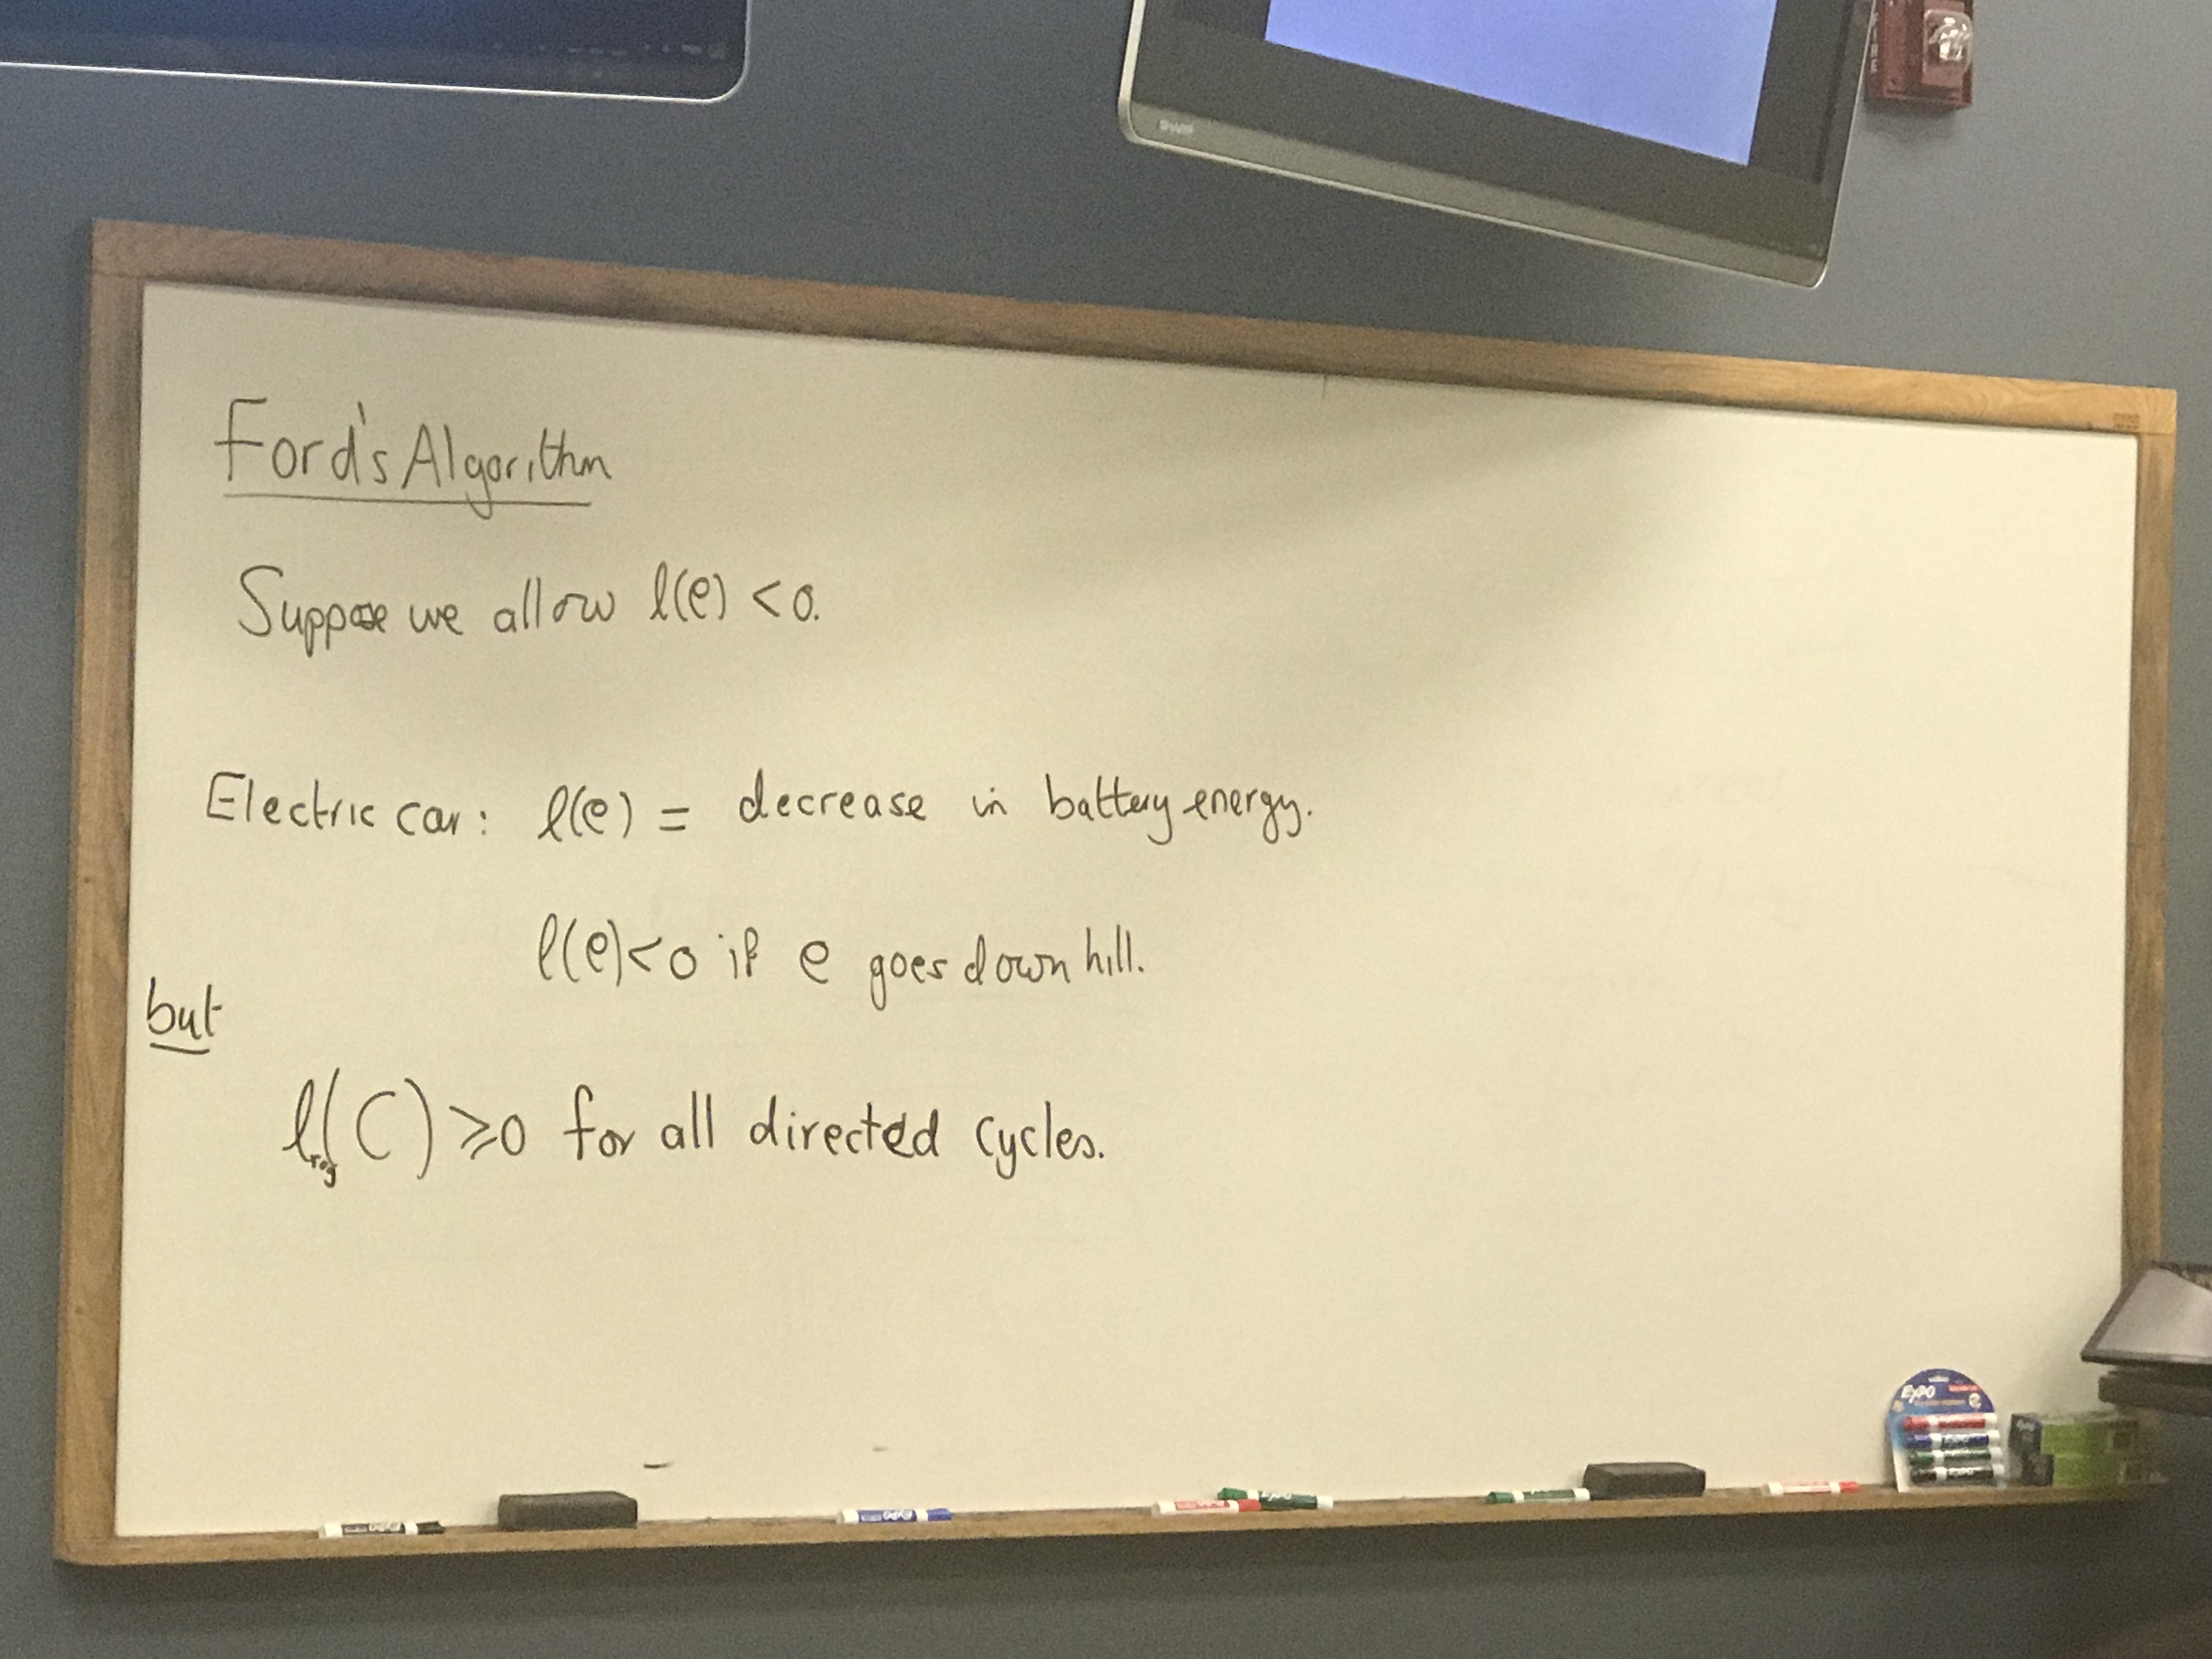 SHARP
Ford's Algorithm
Suppose we allow l(e) < 0.
Electric car: l(e) = decrease in battery energy.
l(e) < 0 if e goes down hill.
but
l(C) ≥ 0 for all directed cycles.
EXPO